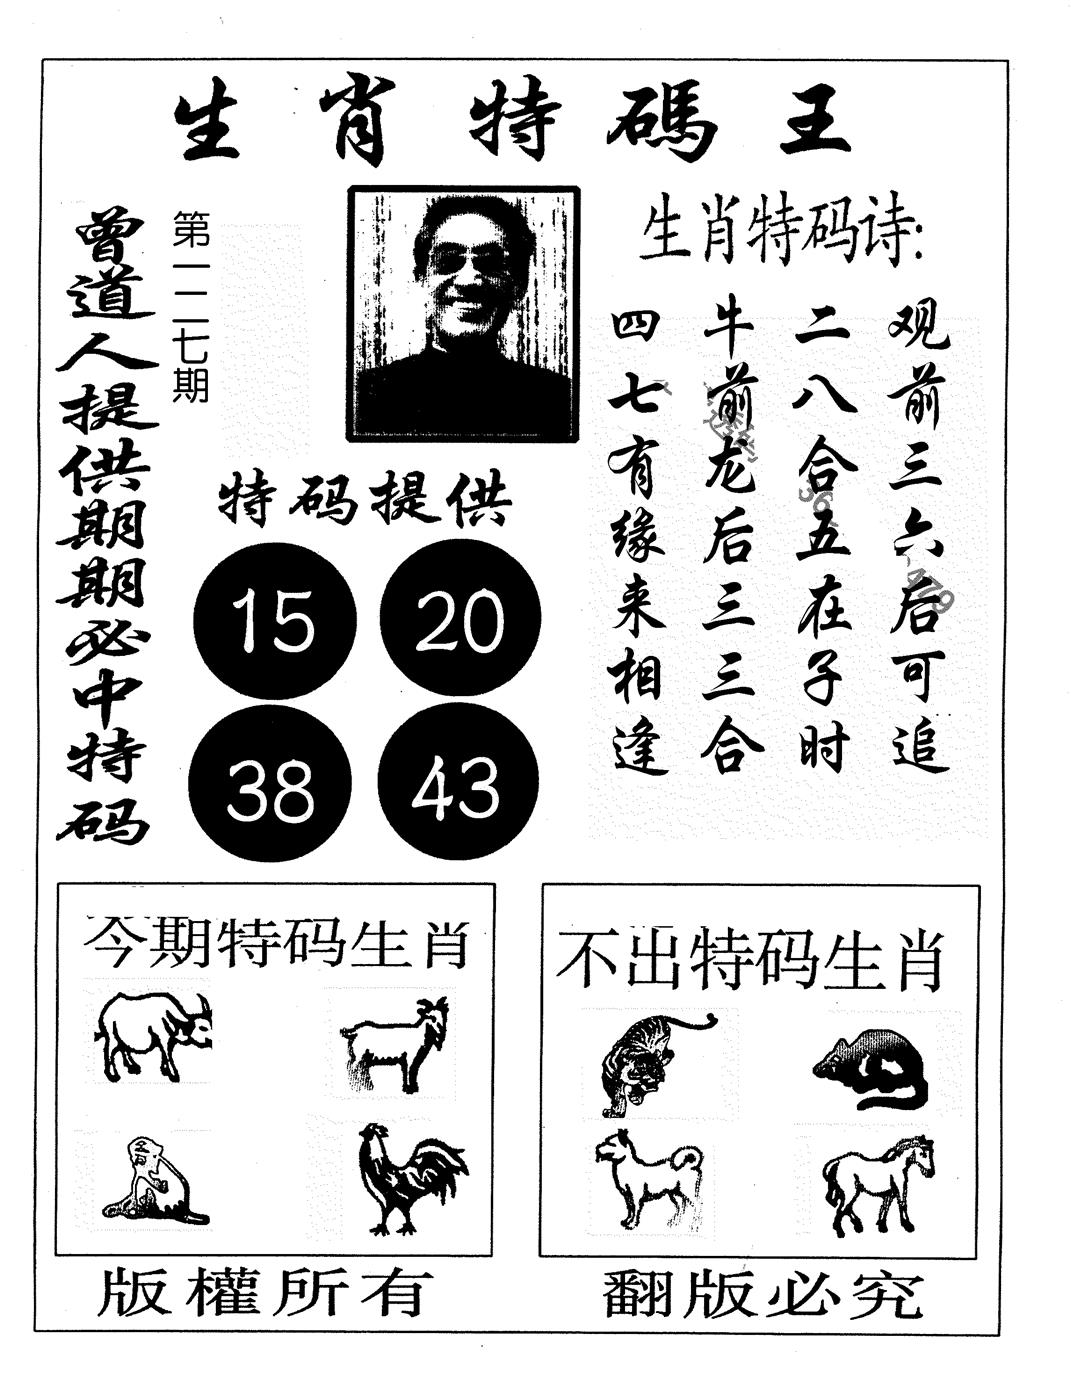 生肖特碼王
曾道人提供期期必中特码
第一二七期
生肖特码诗:
观前三六后可追
二八合五在子时
牛前龙后三三合
四七有缘来相逢
特码提供
15 20
38 43
今期特码生肖
不出特码生肖
版權所有
翻版必究